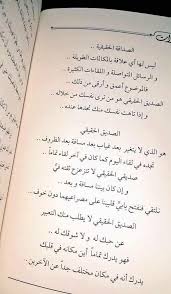 الصداقة الحقيقية ..
ليس لها أي علاقة بالمكالمات الطويلة ..
و الرسائل المتواصلة و اللقاءات الكثيرة ..
فالموضوع أعمق و أرقى من ذلك ..
الصديق الحقيقي هو من ترى نفسك من خلاله ..
و إن تاهت نفسك منك تجدها عنده ..
الصديق الحقيقي
هو الذي لا يتغير بعد غياب بعد مسافة بعد الظروف ..
تجده في لقاء اليوم كما كان في آخر لقاء تماماً ..
صديقي الحقيقي لا تتزعزع ثقته فيَّ
و إن كان بيننا مسافة و بعد ..
نلتقي فنفتح بابيّ قلبينا على مصراعيهما دون خوف ..
الصديق الحقيقي لا يطلب منك التعبير
عن حبك له و لا شوقك له ..
فهو يدرك تماماً أين مكانه في قلبك
يدرك أنه في مكان مختلف جداً عن الآخرين ..